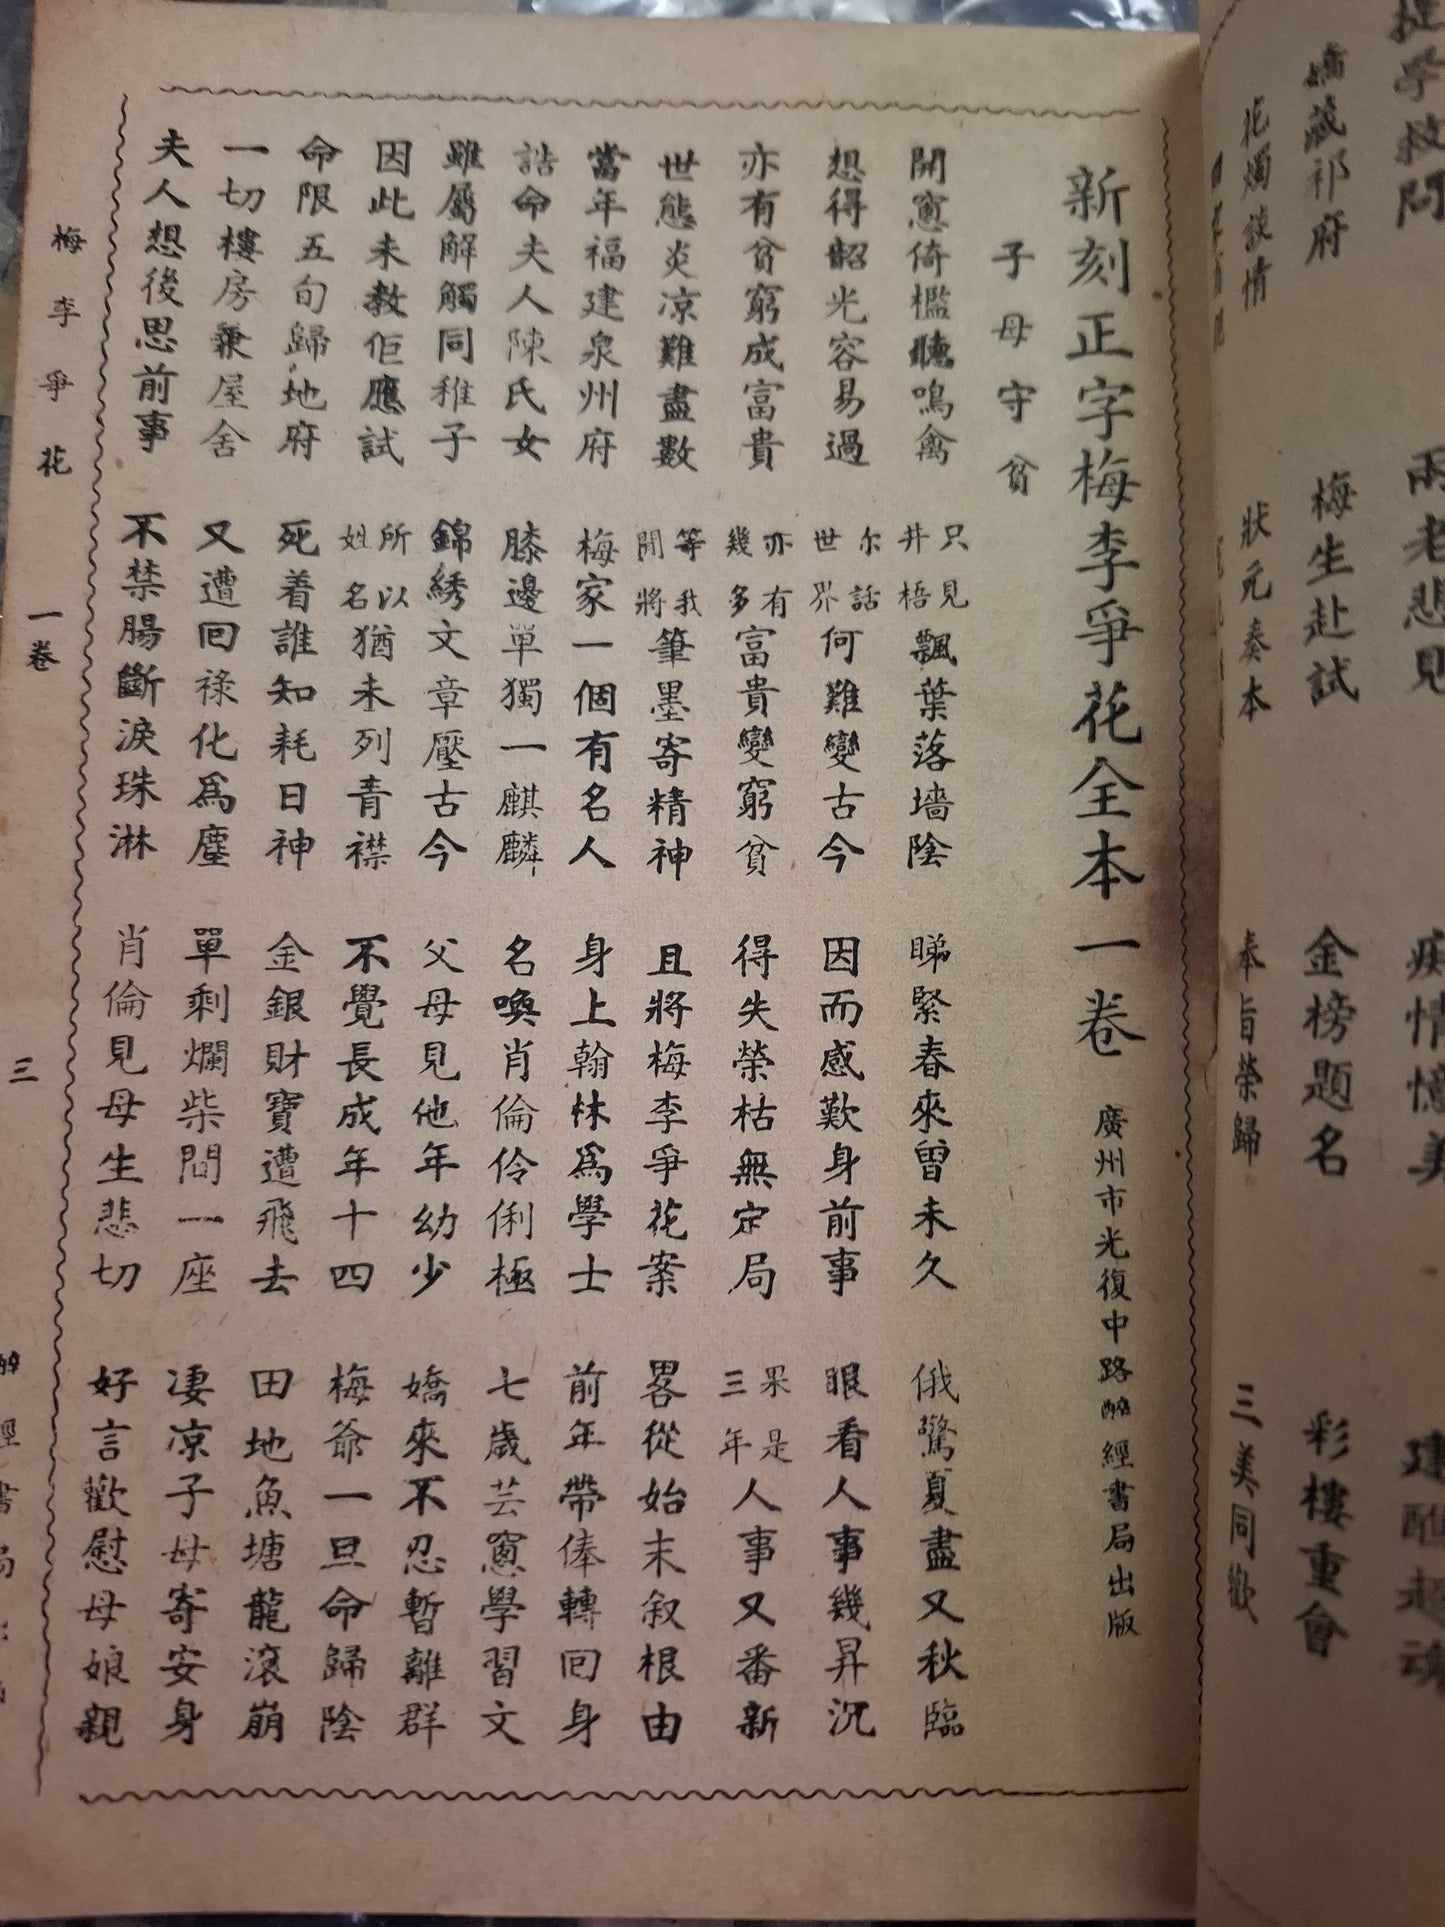 新刻正字梅李爭花全本一卷 廣州市光復中路醉經書局出版
子母守貧
開窻倚檻聽鳴禽 只見井梧飄葉落墻陰 睇緊春來曾未久 俄驚夏盡又秋臨
想得韶光容易過 尔話世界何難變古今 因而感歎身前事 眼看人事幾昇沉
亦有貧窮成富貴 亦有幾多富貴變窮貧 得失榮枯無定局 果是三年人事又番新
世態炎凉難盡數 等我開將筆墨寄精神 且將梅李爭花案 畧從始末叙根由
當年福建泉州府 梅家一個有名人 身上翰林爲學士 前年帶俸轉回身
誥命夫人陳氏女 膝邊單獨一麒麟 名喚肖倫伶俐極 七歲芸窻學習文
雖屬解觸同稚子 錦綉文章壓古今 父母見他年幼少 嬌來不忍暫離群
因此未教佢應試 所以姓名猶未列青襟 不覺長成年十四 梅爺一旦命歸陰
命限五旬歸地府 死着誰知耗日神 金銀財寶遭飛去 田地魚塘龍滾崩
一切樓房兼屋舍 又遭回祿化爲塵 單剩爛柴間一座 凄凉子母寄安身
夫人想後思前事 不禁腸斷淚珠淋 肖倫見母生悲切 好言歡慰母娘親
梅李爭花 一卷 三
兩老悲見
嬌藏祁府 梅生赴試 金榜題名 彩樓重會
花燭談情 狀元奏本 奉旨榮歸 三美同歡